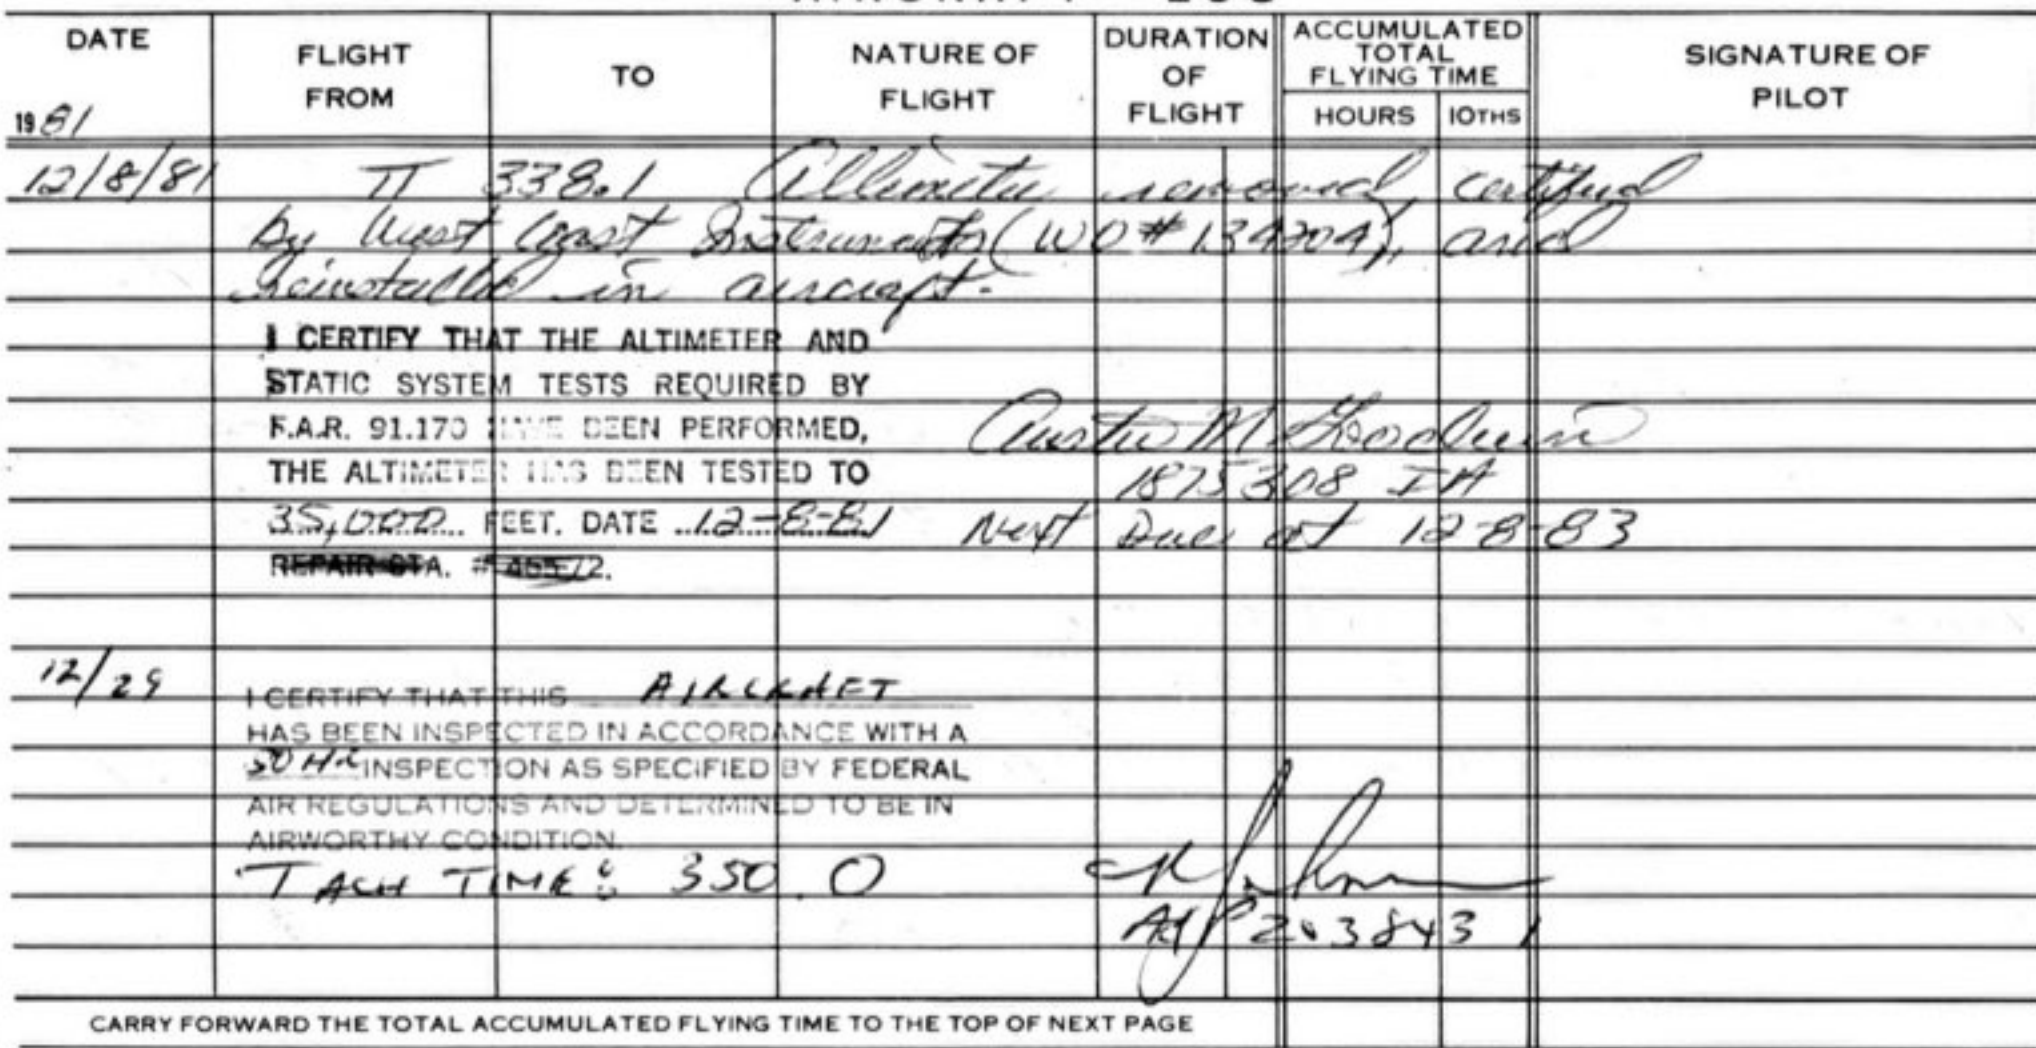 DATE FLIGHT FROM TO NATURE OF FLIGHT DURATION OF FLIGHT ACCUMULATED TOTAL FLYING TIME HOURS 10THS SIGNATURE OF PILOT
1981
12/8/81 TT 338.1 Altimeter removed, certified
by West Coast Instruments (WO# 134204), and
reinstalled in aircraft.
I CERTIFY THAT THE ALTIMETER AND
STATIC SYSTEM TESTS REQUIRED BY
F.A.R. 91.170 HAVE BEEN PERFORMED,
THE ALTIMETER HAS BEEN TESTED TO
35,000 FEET. DATE 12-8-81
REPAIR STA.
Austin M. Goodwin
1875308 IA
Next Due at 12-8-83
12/29 I CERTIFY THAT THIS AIRCRAFT
HAS BEEN INSPECTED IN ACCORDANCE WITH A
50 HR INSPECTION AS SPECIFIED BY FEDERAL
AIR REGULATIONS AND DETERMINED TO BE IN
AIRWORTHY CONDITION.
TACH TIME: 350.0
A&P 2038431
CARRY FORWARD THE TOTAL ACCUMULATED FLYING TIME TO THE TOP OF NEXT PAGE